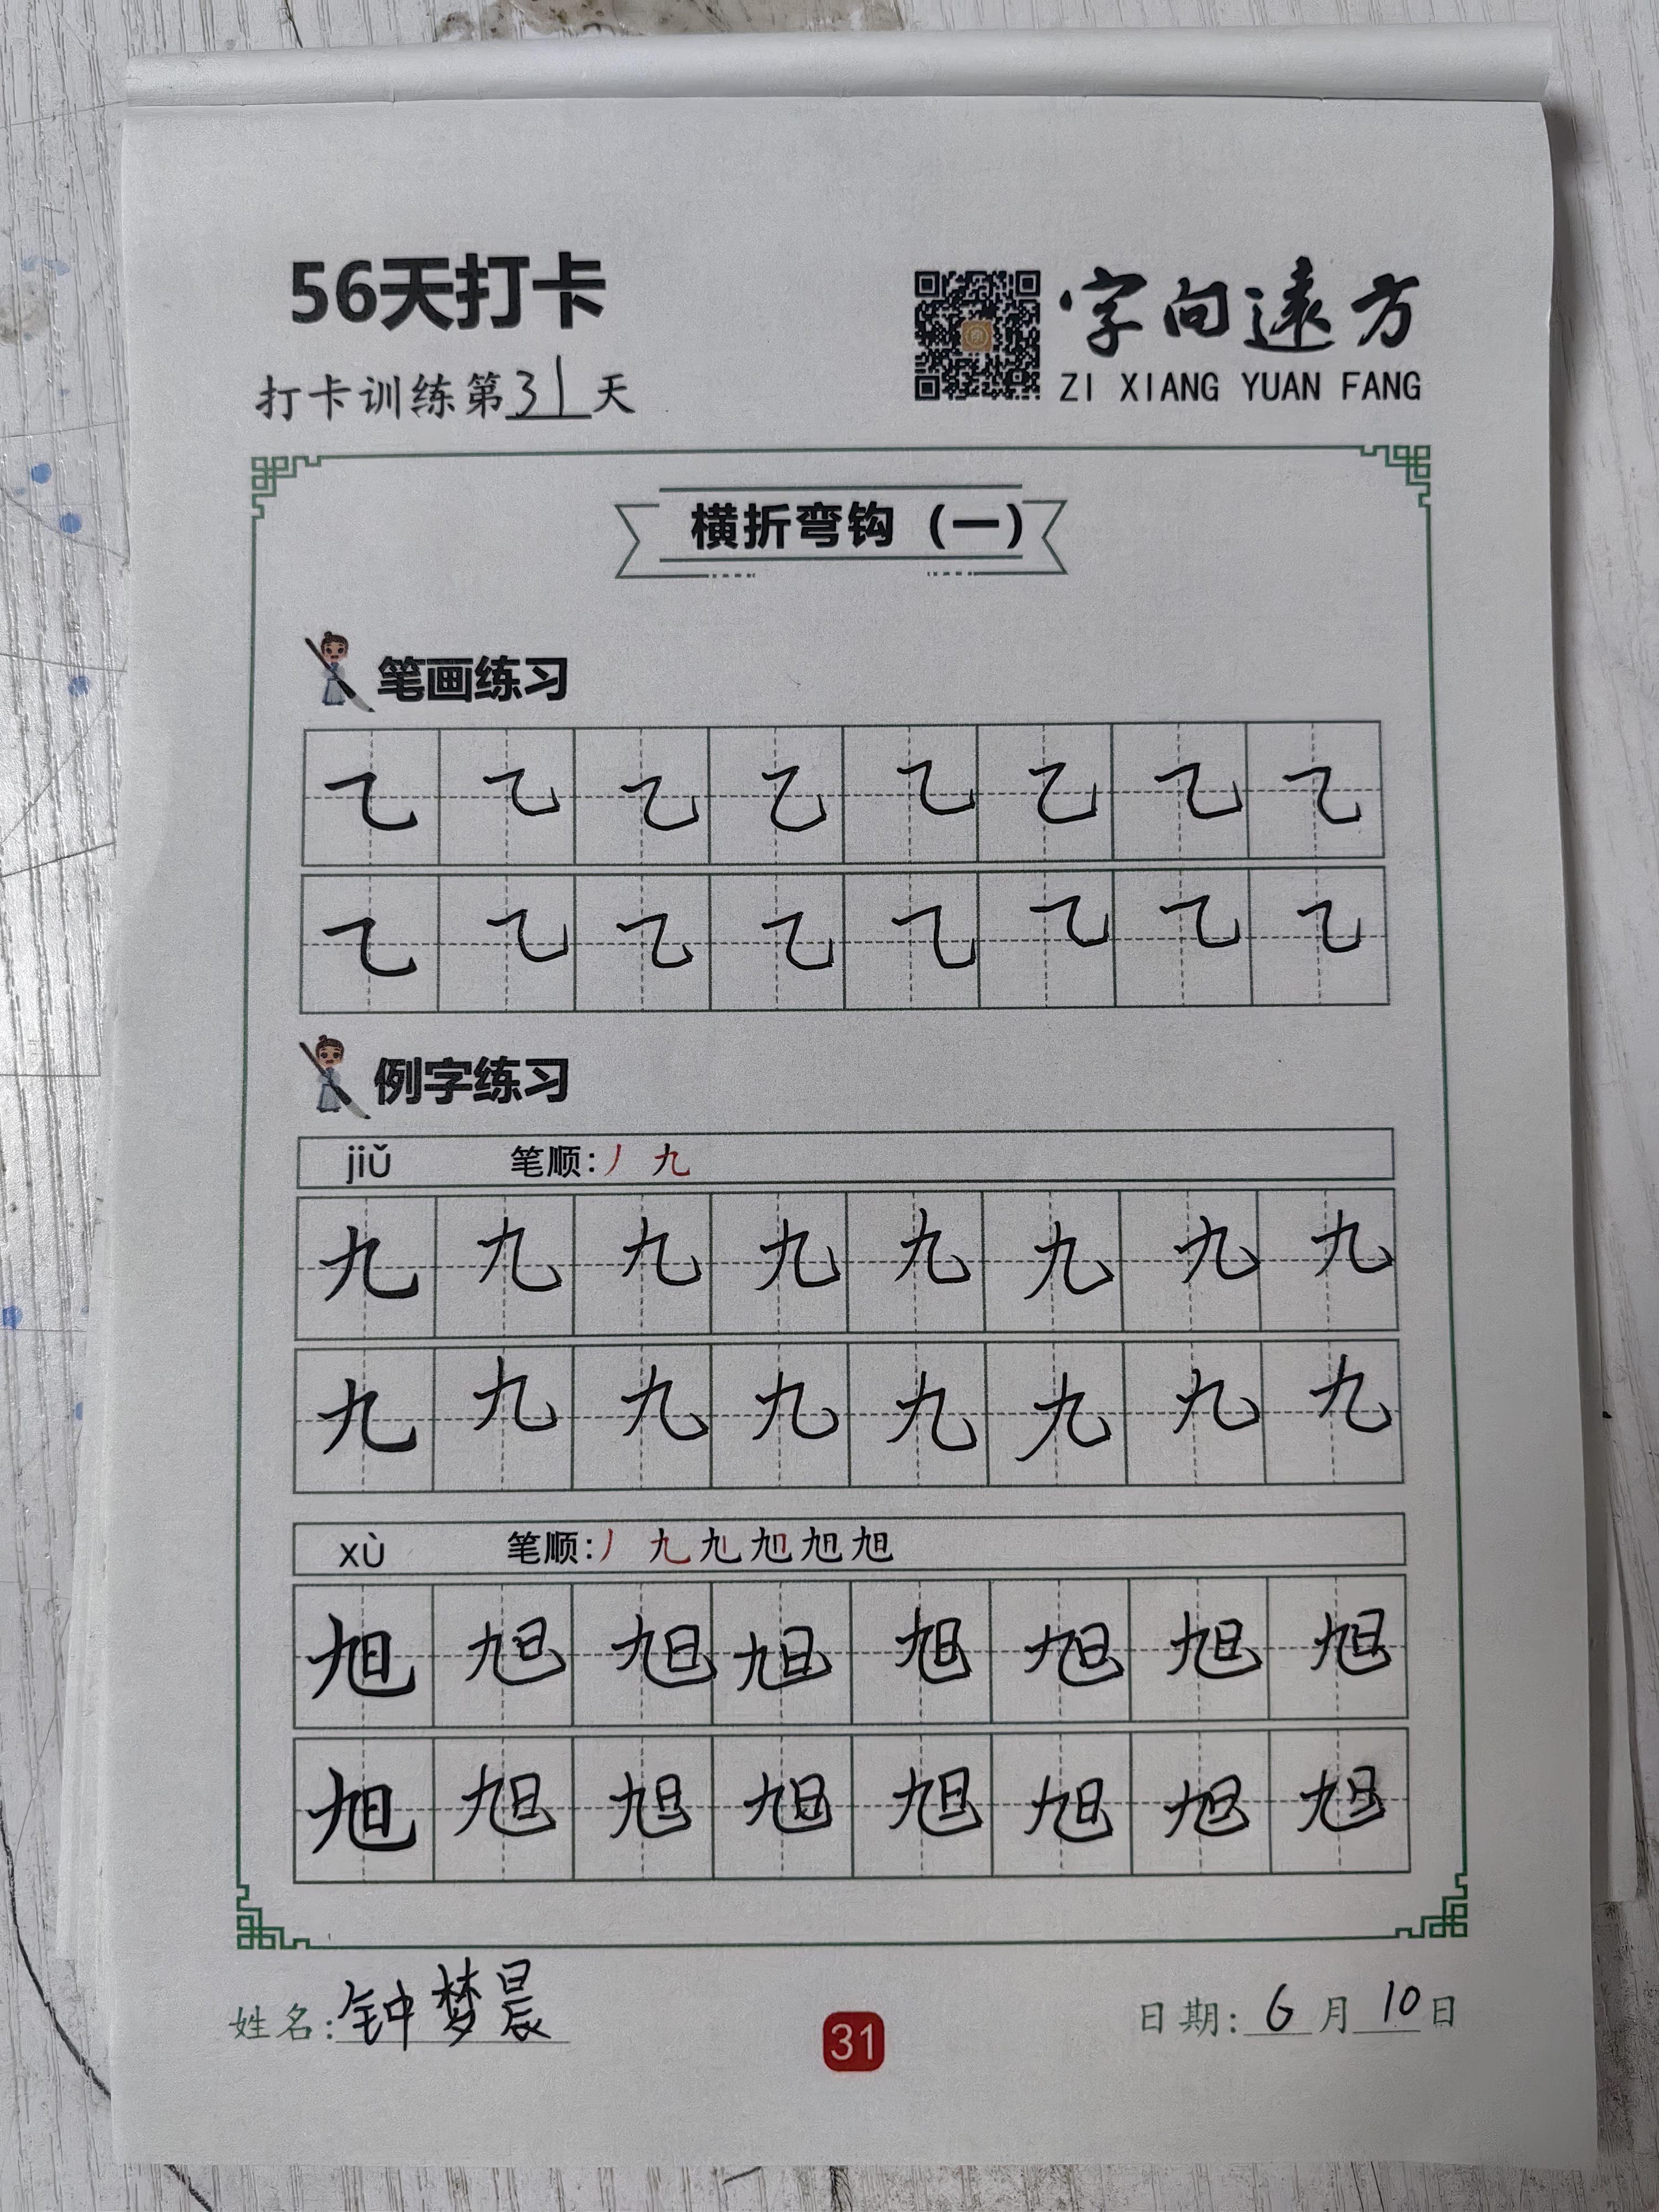 56天打卡
字向遠方
ZI XIANG YUAN FANG
打卡训练第31天
横折弯钩（一）
笔画练习
㇈ ㇈ ㇈ ㇈ ㇈ ㇈ ㇈ ㇈
㇈ ㇈ ㇈ ㇈ ㇈ ㇈ ㇈ ㇈
例字练习
jiǔ 笔顺：丿 九
九 九 九 九 九 九 九 九
九 九 九 九 九 九 九 九
xù 笔顺：丿 九 旭 旭 旭 旭
旭 旭 旭 旭 旭 旭 旭 旭
旭 旭 旭 旭 旭 旭 旭 旭
姓名：钟梦晨
31
日期：6月10日